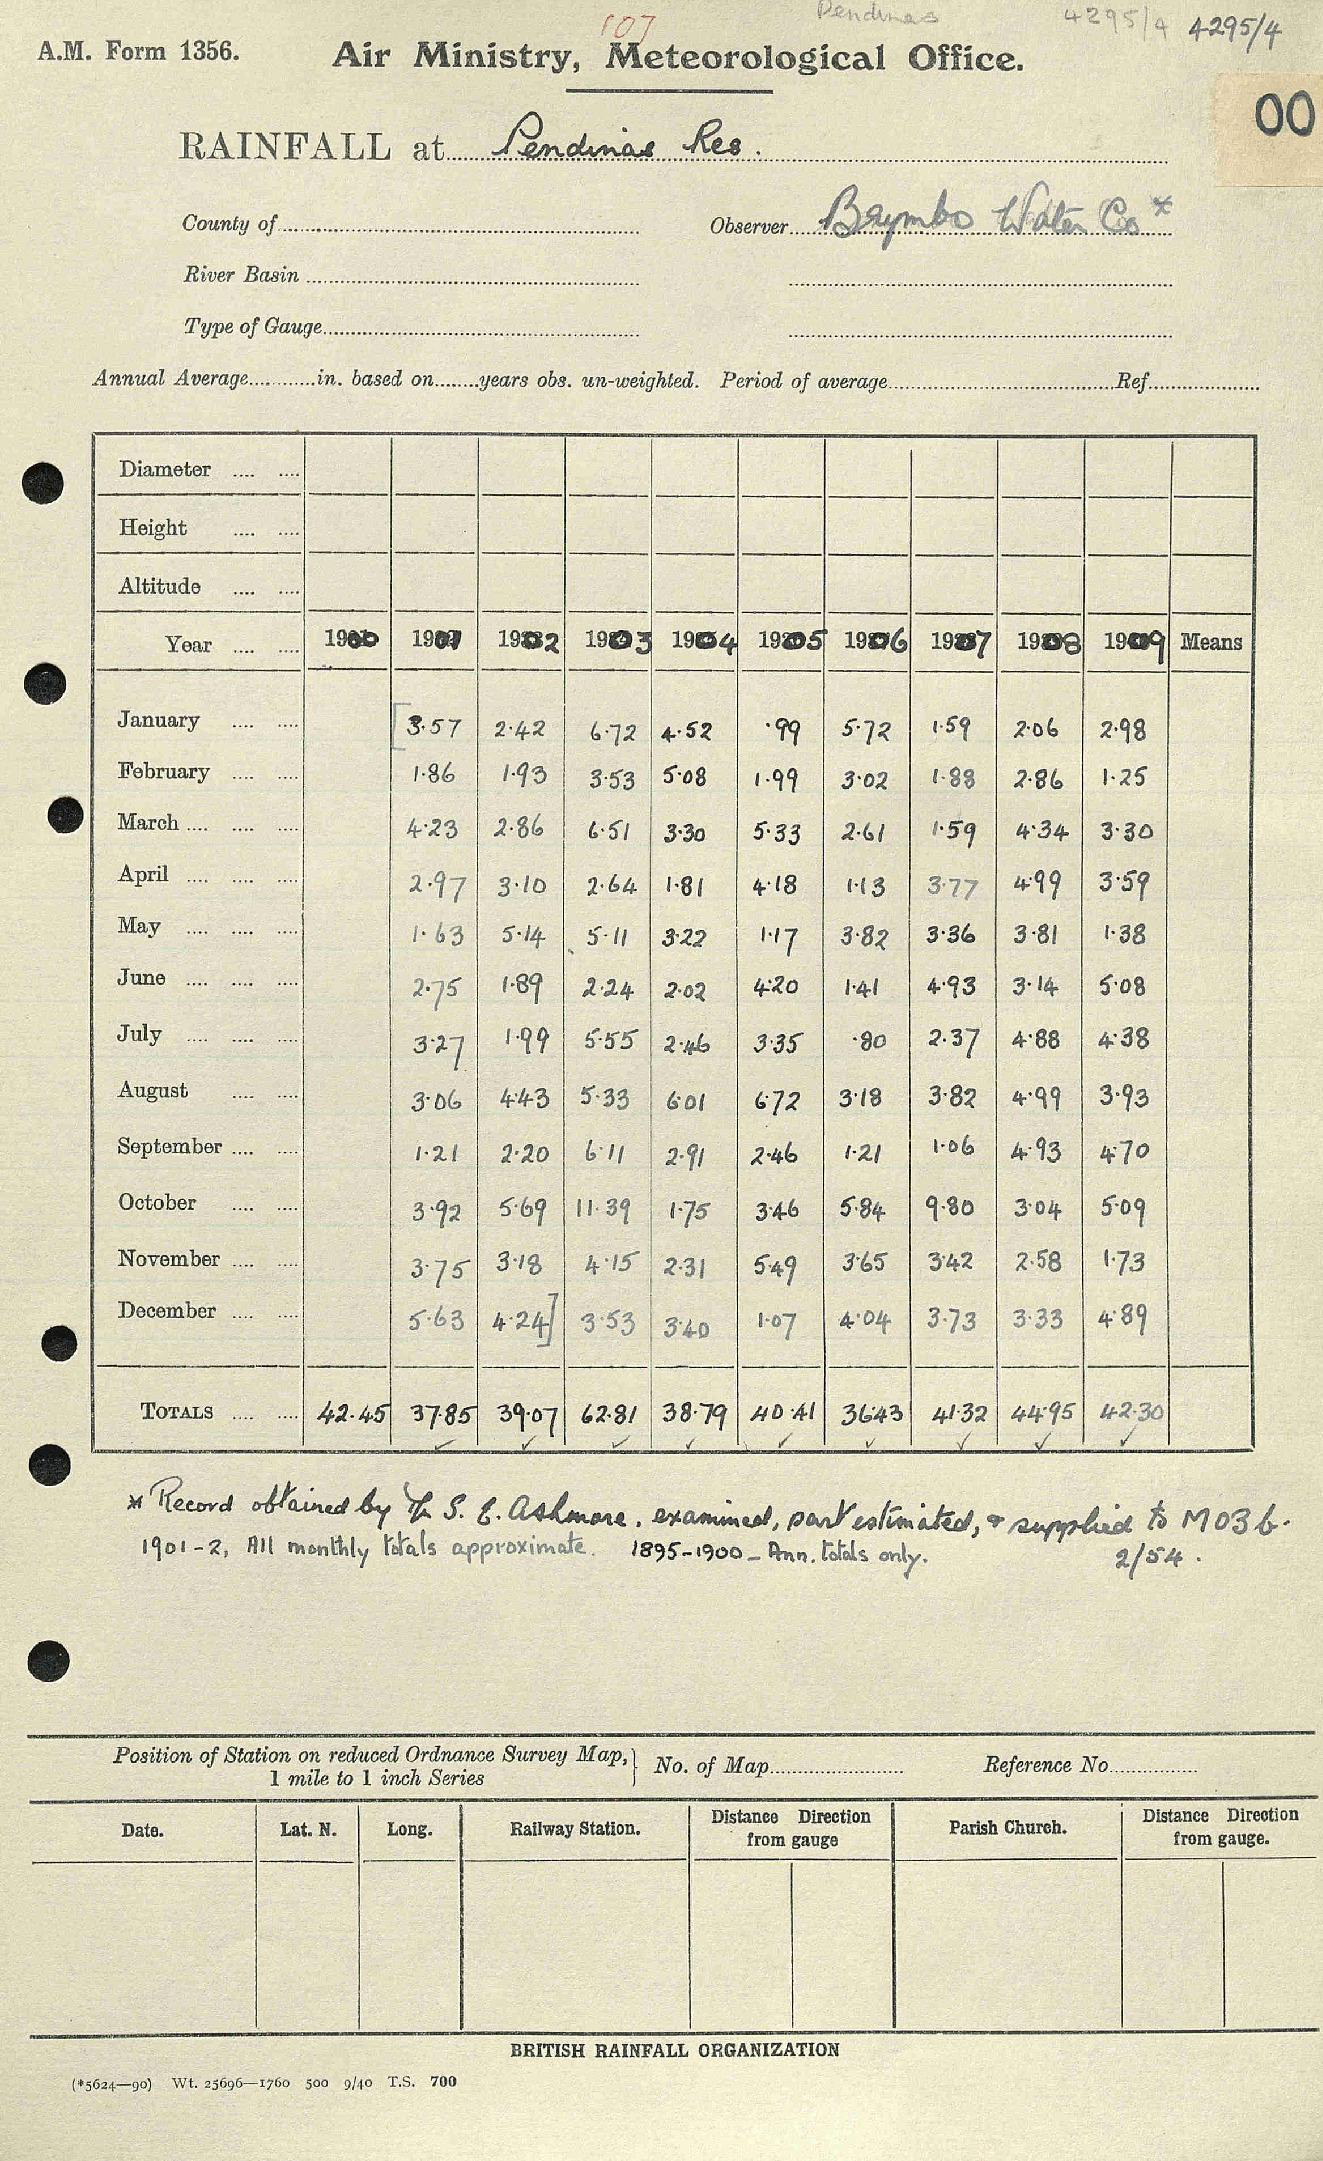 107 Pendinas 4295/4 4295/4
A.M. Form 1356. Air Ministry, Meteorological Office.
00
RAINFALL at Pendinas Res.
County of Observer Brymbo Water Co *
River Basin
Type of Gauge
Annual Average in. based on years obs. un-weighted. Period of average Ref.
Diameter
Height
Altitude
Year 1900 1901 1902 1903 1904 1905 1906 1907 1908 1909 Means
January [3.57 2.42 6.72 4.52 .99 5.72 1.59 2.06 2.98
February 1.86 1.93 3.53 5.08 1.99 3.02 1.88 2.86 1.25
March 4.23 2.86 6.51 3.30 5.33 2.61 1.59 4.34 3.30
April 2.97 3.10 2.64 1.81 4.18 1.13 3.77 4.99 3.59
May 1.63 5.14 5.11 3.22 1.17 3.82 3.36 3.81 1.38
June 2.75 1.89 2.24 2.02 4.20 1.41 4.93 3.14 5.08
July 3.27 1.99 5.55 2.46 3.35 .80 2.37 4.88 4.38
August 3.06 4.43 5.33 6.01 6.72 3.18 3.82 4.99 3.93
September 1.21 2.20 6.11 2.91 2.46 1.21 1.06 4.93 4.70
October 3.92 5.69 11.39 1.75 3.46 5.84 9.80 3.04 5.09
November 3.75 3.18 4.15 2.31 5.49 3.65 3.42 2.58 1.73
December 5.63 4.24] 3.53 3.40 1.07 4.04 3.73 3.33 4.89
TOTALS 42.45 37.85 39.07 62.81 38.79 40.41 36.43 41.32 44.95 42.30
* Record obtained by S. E. Ashmore, examined, part estimated, & supplied to M O3 b.
1901-2, All monthly totals approximate. 1895-1900 - Ann. totals only. 2/54.
Position of Station on reduced Ordnance Survey Map, 1 mile to 1 inch Series } No. of Map Reference No.
Date. Lat. N. Long. Railway Station. Distance Direction from gauge Parish Church. Distance Direction from gauge.
BRITISH RAINFALL ORGANIZATION
(*5624—90) Wt. 25696—1760 500 9/40 T.S. 700